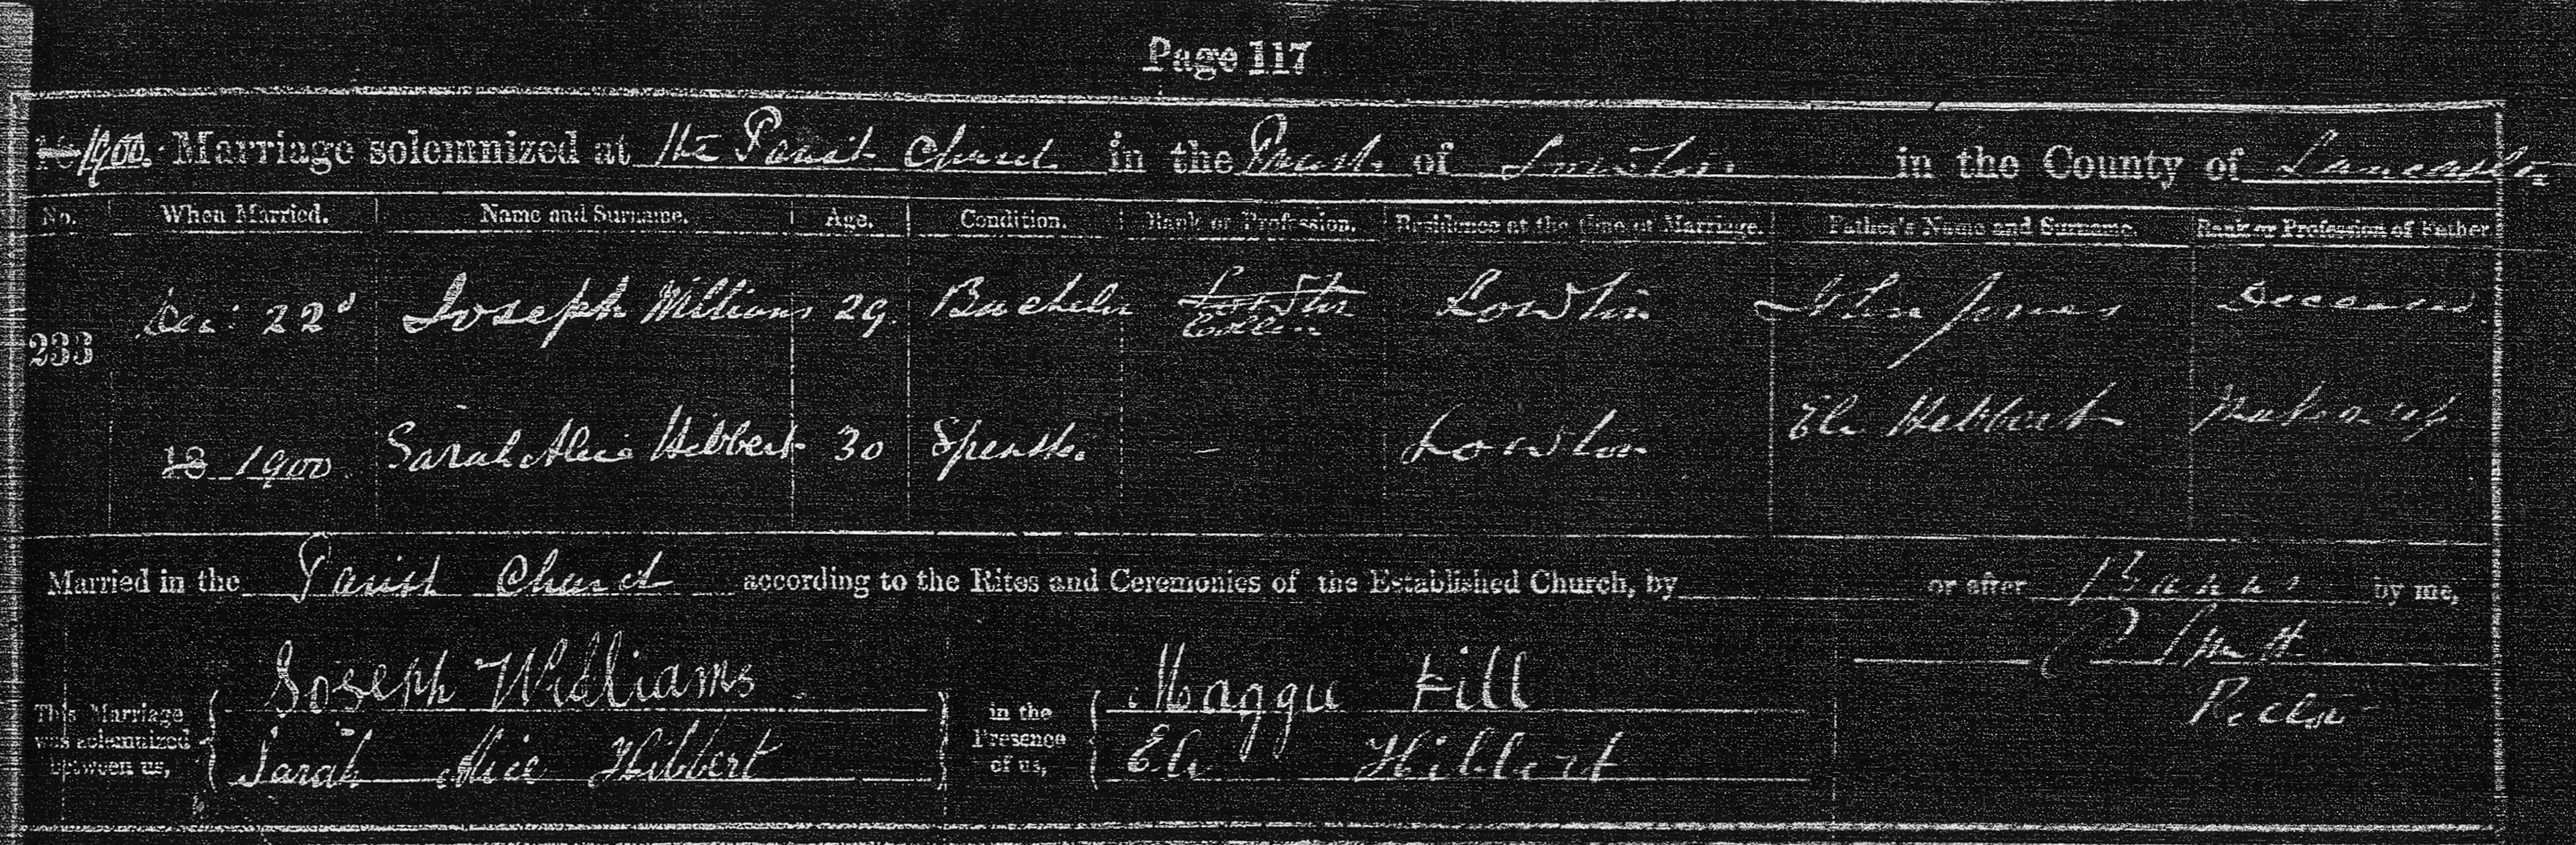 Page 117
1900. Marriage solemnized at the Parish Church in the Parish of Lowton in the County of Lancaster
No. When Married. Name and Surname. Age. Condition. Rank or Profession. Residence at the time of Marriage. Father's Name and Surname. Rank or Profession of Father
233 Dec: 22d Joseph Williams 29 Bachelor Lowton Collier Lowton John Jones Deceased
18 1900 Sarah Alice Hibbert 30 Spinster - Lowton Eli Hibbert
Married in the Parish Church according to the Rites and Ceremonies of the Established Church, by or after Banns by me,
This Marriage was solemnized between us, Joseph Williams in the Presence of us, Maggie Hill Smith
Sarah Alice Hibbert Eli Hibbert Rector